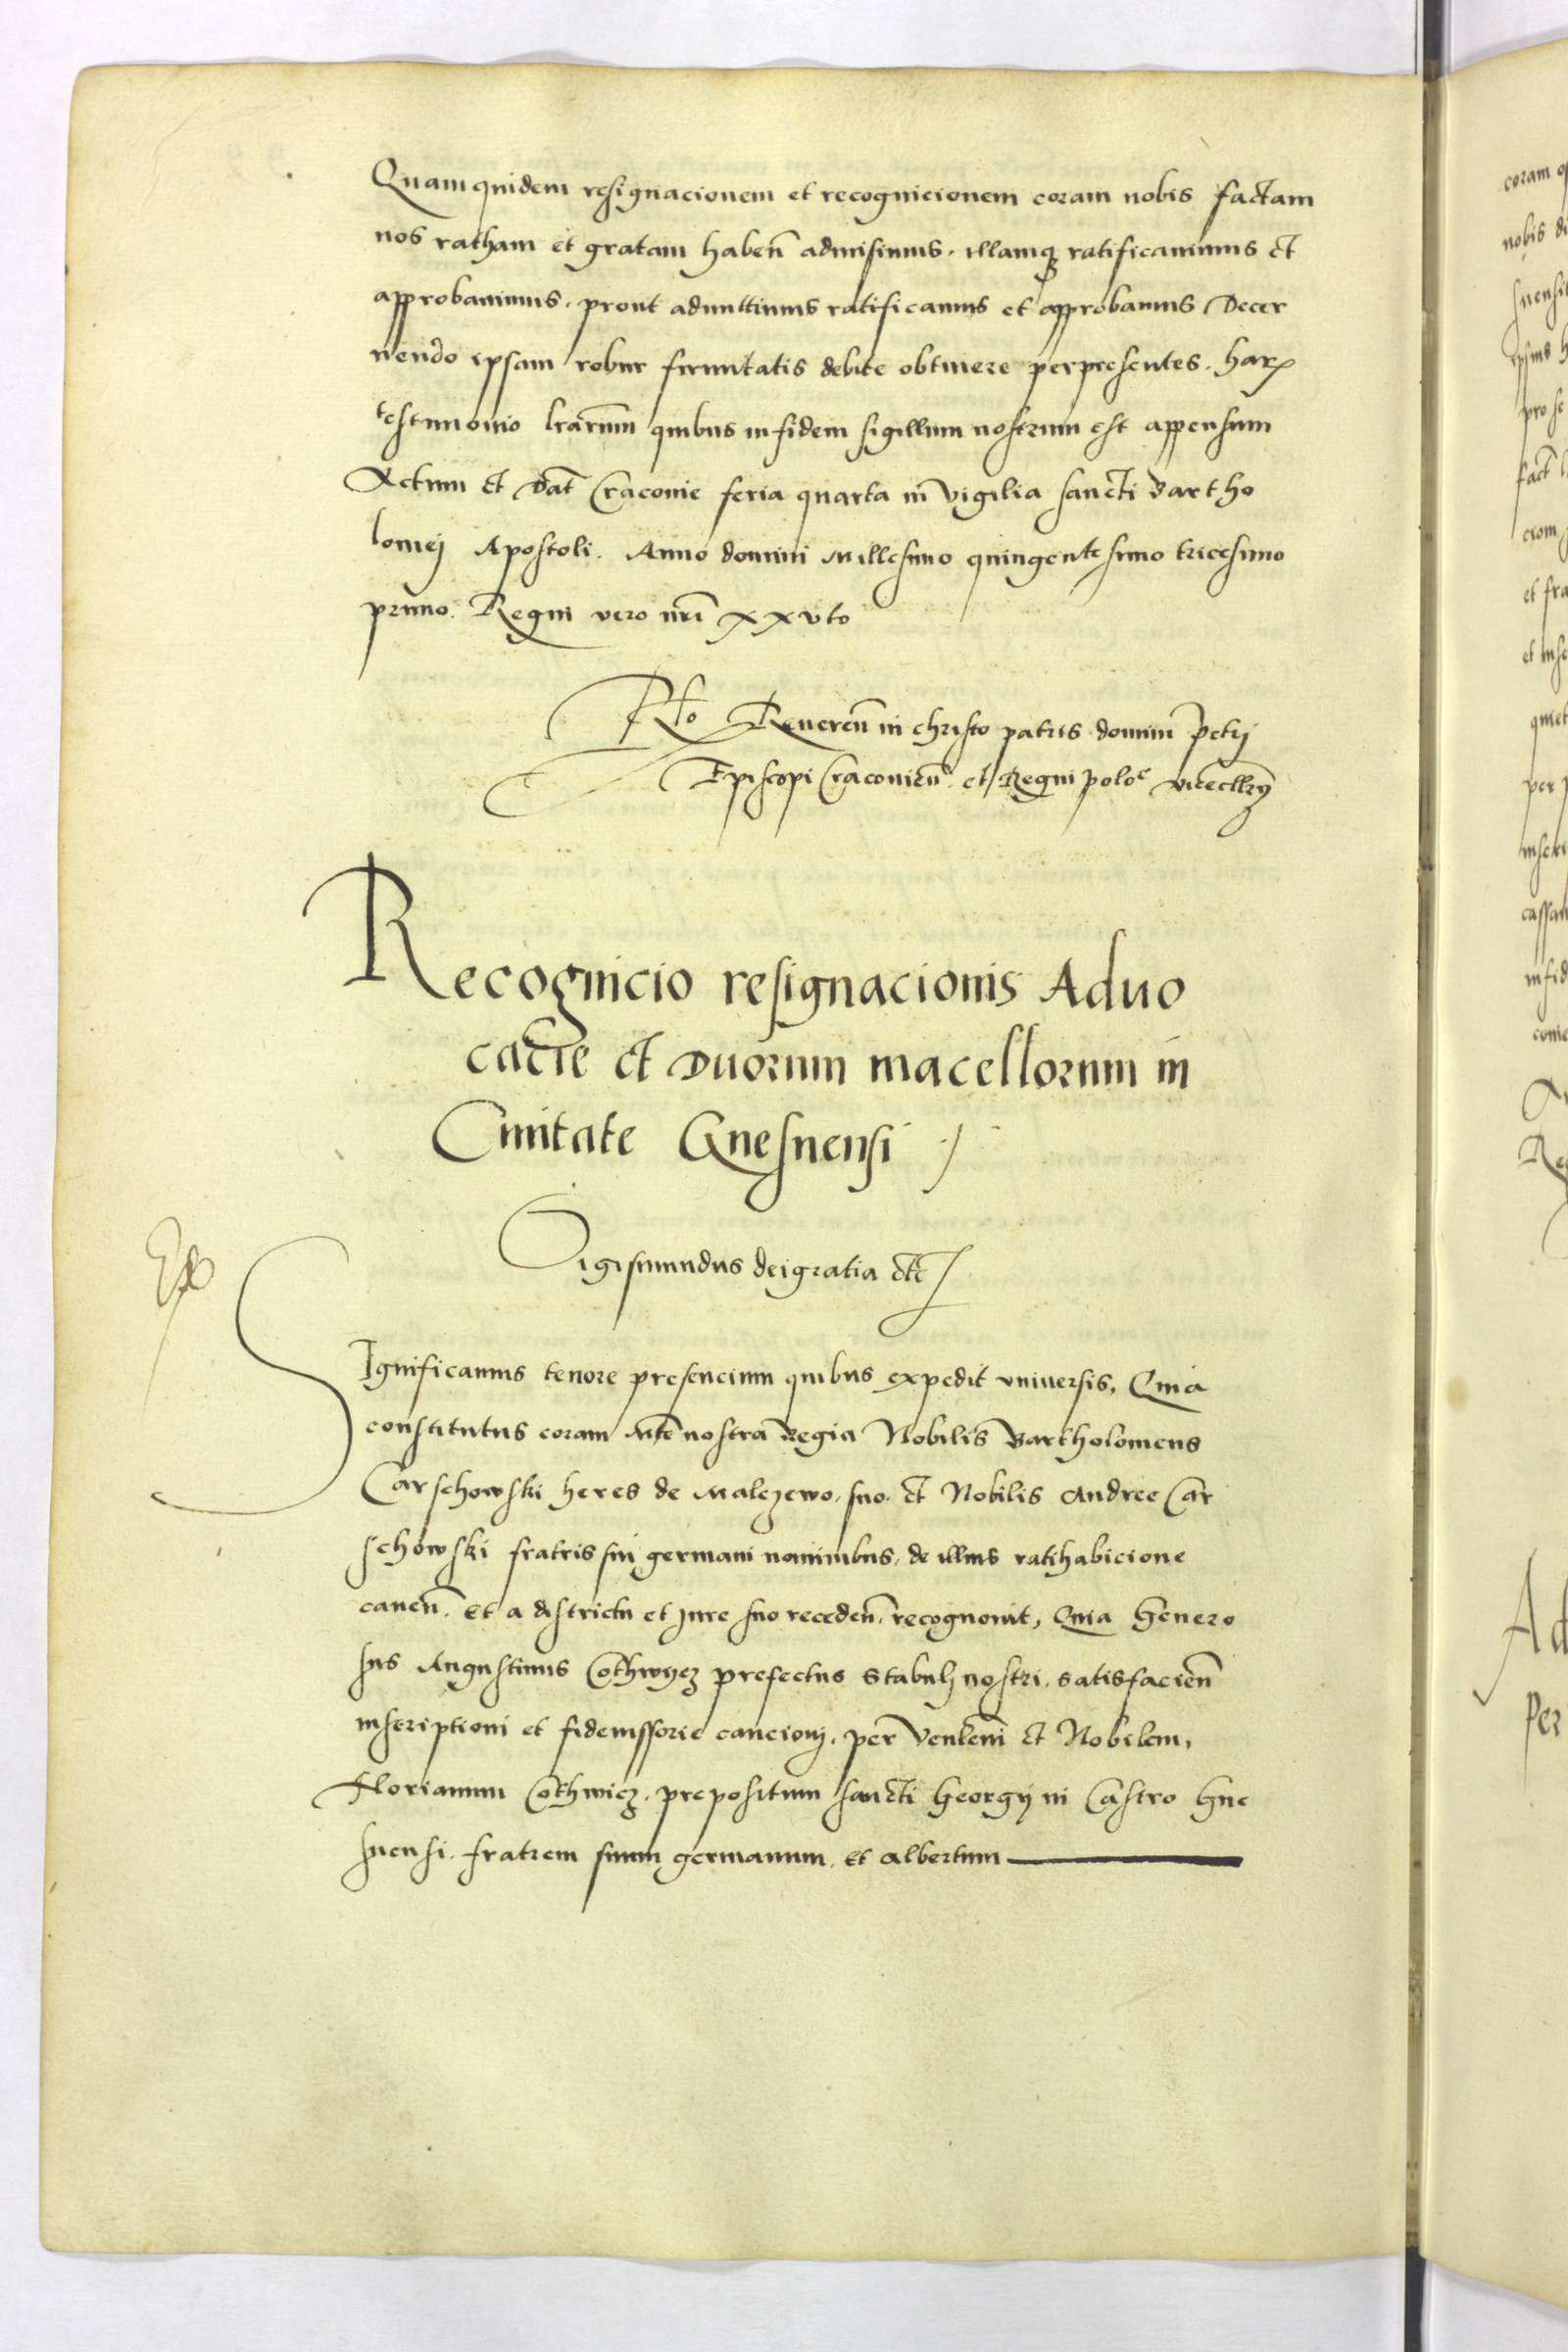 Quam quidem resignacionem et recognicionem coram nobis factam
nos ratham et gratam haben̄ admisimus. illamqꝫ ratificauimus et
approbauimus. prout admittimus ratificamus et approbamus Decer
nendo ipsam robur firmitatis debite obtinere per presentes. harꝫ
testimonio lrarum̄ quibus in fidem sigillum nostrum est appensum
Actum et Dat̄ Cracouie feria quarta in vigilia sancti Bartho
lomej Apostoli. Anno domini Millesimo quingentesimo tricesimo
primo. Regni vero nrī xxvto
Rlo Reueren̄ in christo patris domini Petrj
Episcopi Cracouien̄ et Regni poloe vicecllrÿ
Recognicio resignacionis Aduo
catie et Duorum macellorum in
Ciuitate Gnesnensi
Sigismundus dei gratia etc̄
Significamus tenore presencium quibus expedit vniuersis, Quia
constitutus coram Mte nostra Regia Nobilis Bartholomeus
Carschowski heres de Malczewo. suo. et Nobilis Andree Car
schowski fratris sui germani nominibus, de illius ratihabicione
cauen̄. Et a districtu et iure suo receden̄, recognouit, Quia Genero
sus Augustinus Cothwycz prefectus stabulj nostri. satisfacien̄
inscriptioni et fideiussorie caucionj. per Venlem̄ et Nobilem,
Florianum Cothwicz. prepositum sancti Georgÿ in Castro Gne
snensi. fratrem suum germanum. et Albertum
coram
nobis